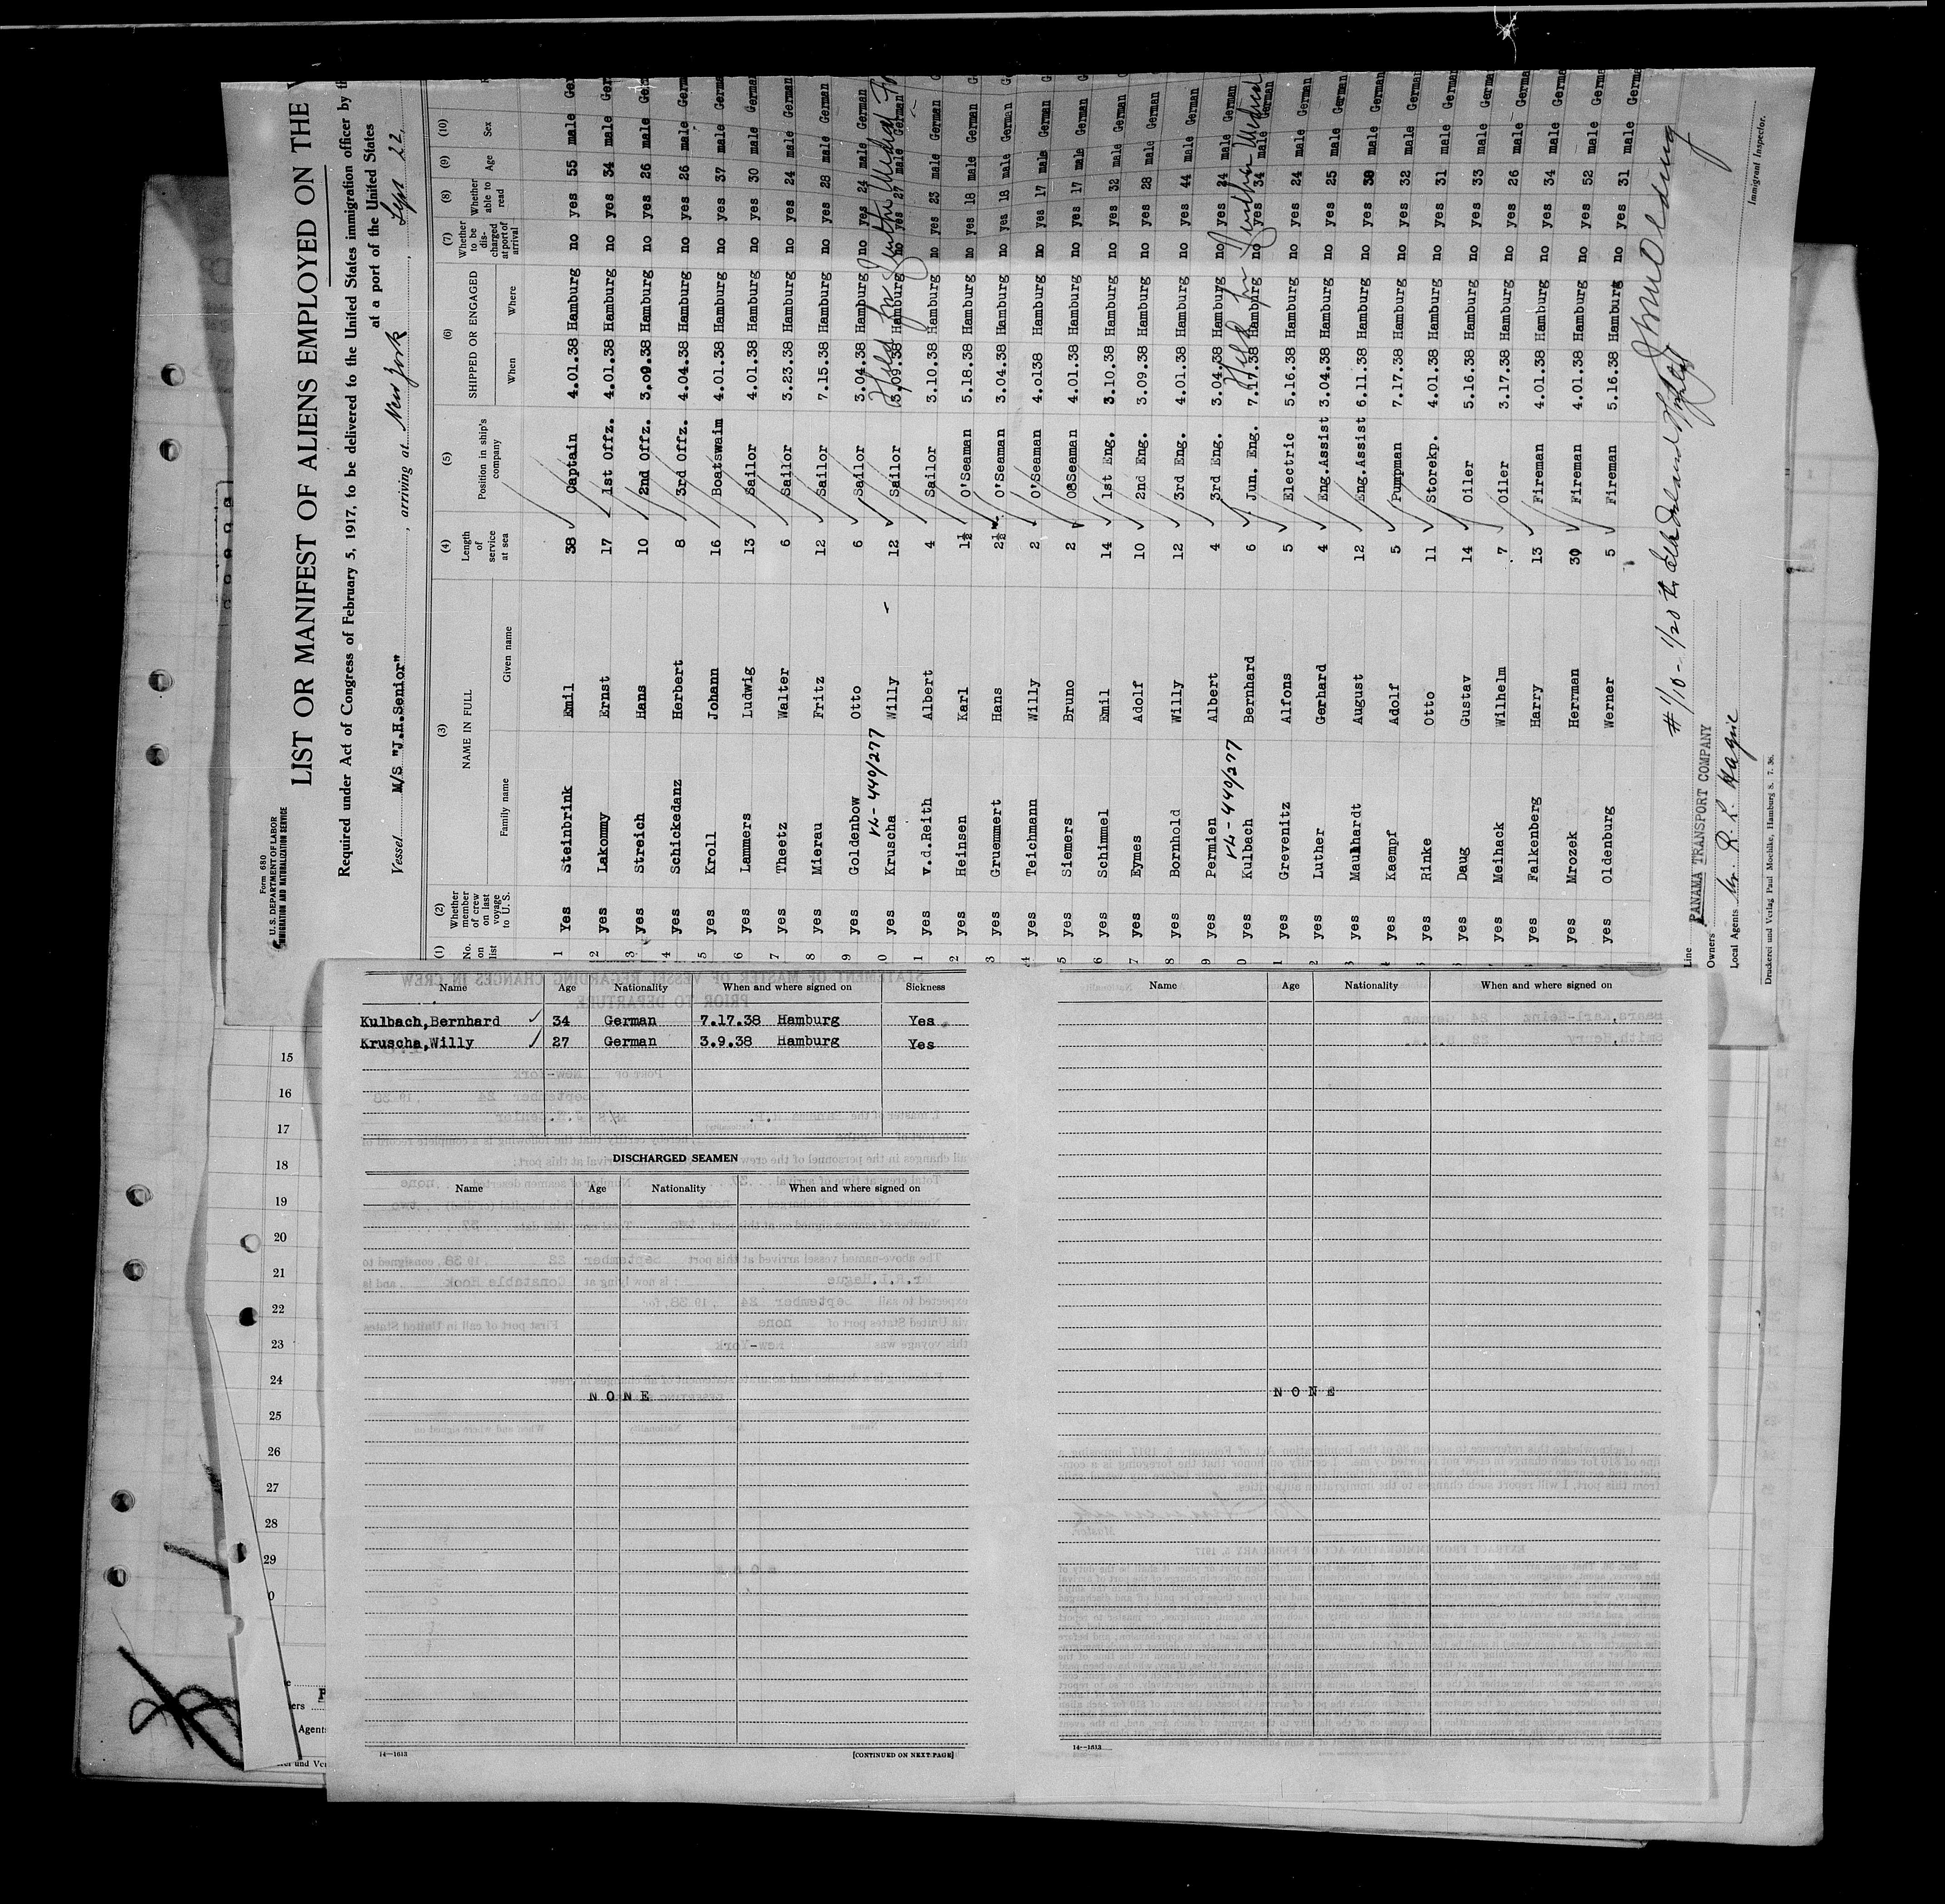 Form 680
U. S. DEPARTMENT OF LABOR
IMMIGRATION AND NATURALIZATION SERVICE
LIST OR MANIFEST OF ALIENS EMPLOYED ON THE
Required under Act of Congress of February 5, 1917, to be delivered to the United States immigration officer by
at a port of the United States
Vessel M/S "J.H.Senior", arriving at New York, 22,
(1) (2) (3) (4) (5) (6) (7) (8) (9) (10)
No. on list
Whether member of crew on last voyage to U. S.
NAME IN FULL
Family name Given name
Length of service at sea
Position in ship's company
SHIPPED OR ENGAGED
When Where
Whether to be discharged at port of arrival
Whether able to read
Age
Sex
1 Yes Steinbrink Emil 38 Captain 4.01.38 Hamburg no yes 55 male Ger
2 yes Lakommy Ernst 17 1st Offz. 4.01.38 Hamburg no yes 34 male Ger
3 yes Streich Hans 10 2nd Offz. 3.09.38 Hamburg no yes 26 male Ge
4 yes Schickedanz Herbert 8 3rd Offz. 4.04.38 Hamburg no yes 26 male Germ
5 yes Kroll Johann 16 Boatswaim 4.01.38 Hamburg no yes 37 male Germa
6 yes Lammers Ludwig 13 Sailor 4.01.38 Hamburg no yes 30 male German
7 yes Theetz Walter 6 Sailor 3.23.38 Hamburg no yes 24 male German
8 yes Mierau Fritz 12 Sailor 7.15.38 Hamburg no yes 28 male German
9 yes Goldenbow Otto 6 Sailor 3.04.38 Hamburg no yes 24 male German
440/277 Held for further Medical
0 yes Kruscha Willy 12 Sailor 3.09.38 Hamburg no yes 27 male German
1 yes v.d.Reith Albert 4 Sailor 3.10.38 Hamburg no yes 23 male German
2 yes Heinsen Karl 1½ O'Seaman 5.18.38 Hamburg no yes 18 male German
3 yes Gruemmert Hans 2½ O'Seaman 3.04.38 Hamburg no yes 18 male German
4 yes Teichmann Willy 2 O'Seaman 4.0138 Hamburg no yes 17 male German
5 yes Siemers Bruno 2 O8Seaman 4.01.38 Hamburg no yes 17 male German
6 yes Schimmel Emil 14 1st Eng. 3.10.38 Hamburg no yes 32 male German
7 yes Eymes Adolf 10 2nd Eng. 3.09.38 Hamburg no yes 28 male German
8 yes Bornhold Willy 12 3rd Eng. 4.01.38 Hamburg no yes 44 male German
9 yes Permien Albert 4 3rd Eng. 3.04.38 Hamburg no yes 24 male German
440/277 Held for further Medical
0 yes Kulbach Bernhard 6 Jun. Eng. 7.17.38 Hamburg no yes 34 male German
1 yes Grevenitz Alfons 5 Electric 5.16.38 Hamburg no yes 24 male German
2 yes Luther Gerhard 4 Eng.Assist 3.04.38 Hamburg no yes 25 male German
3 yes Mauhhardt August 12 Eng.Assist 6.11.38 Hamburg no yes 30 male German
4 yes Kaempf Adolf 5 Pumpman 7.17.38 Hamburg no yes 32 male German
5 yes Rinke Otto 11 Storekp. 4.01.38 Hamburg no yes 31 male German
6 yes Daug Gustav 14 Oiler 5.16.38 Hamburg no yes 33 male German
7 yes Meihack Wilhelm 7 Oiler 3.17.38 Hamburg no yes 26 male German
8 yes Falkenberg Harry 13 Fireman 4.01.38 Hamburg no yes 34 male German
9 yes Mrozek Herman 30 Fireman 4.01.38 Hamburg no yes 52 male German
0 yes Oldenburg Werner 5 Fireman 5.16.38 Hamburg no yes 31 male German
Line PANAMA TRANSPORT COMPANY
Owners
Local Agents Mr. R. L. Hague
Immigrant Inspector.
Druckerei und Verlag Paul Moehlke, Hamburg 8. 7. 36.
Name Age Nationality When and where signed on Sickness
Kulbach,Bernhard 34 German 7.17.38 Hamburg Yes
Kruscha,Willy 27 German 3.9.38 Hamburg Yes
DISCHARGED SEAMEN
Name Age Nationality When and where signed on
NONE
14—1613
[CONTINUED ON NEXT PAGE]
Name Age Nationality When and where signed on
NONE
14—1613
15
16
17
18
19
20
21
22
23
24
25
26
27
28
29
0
Agents